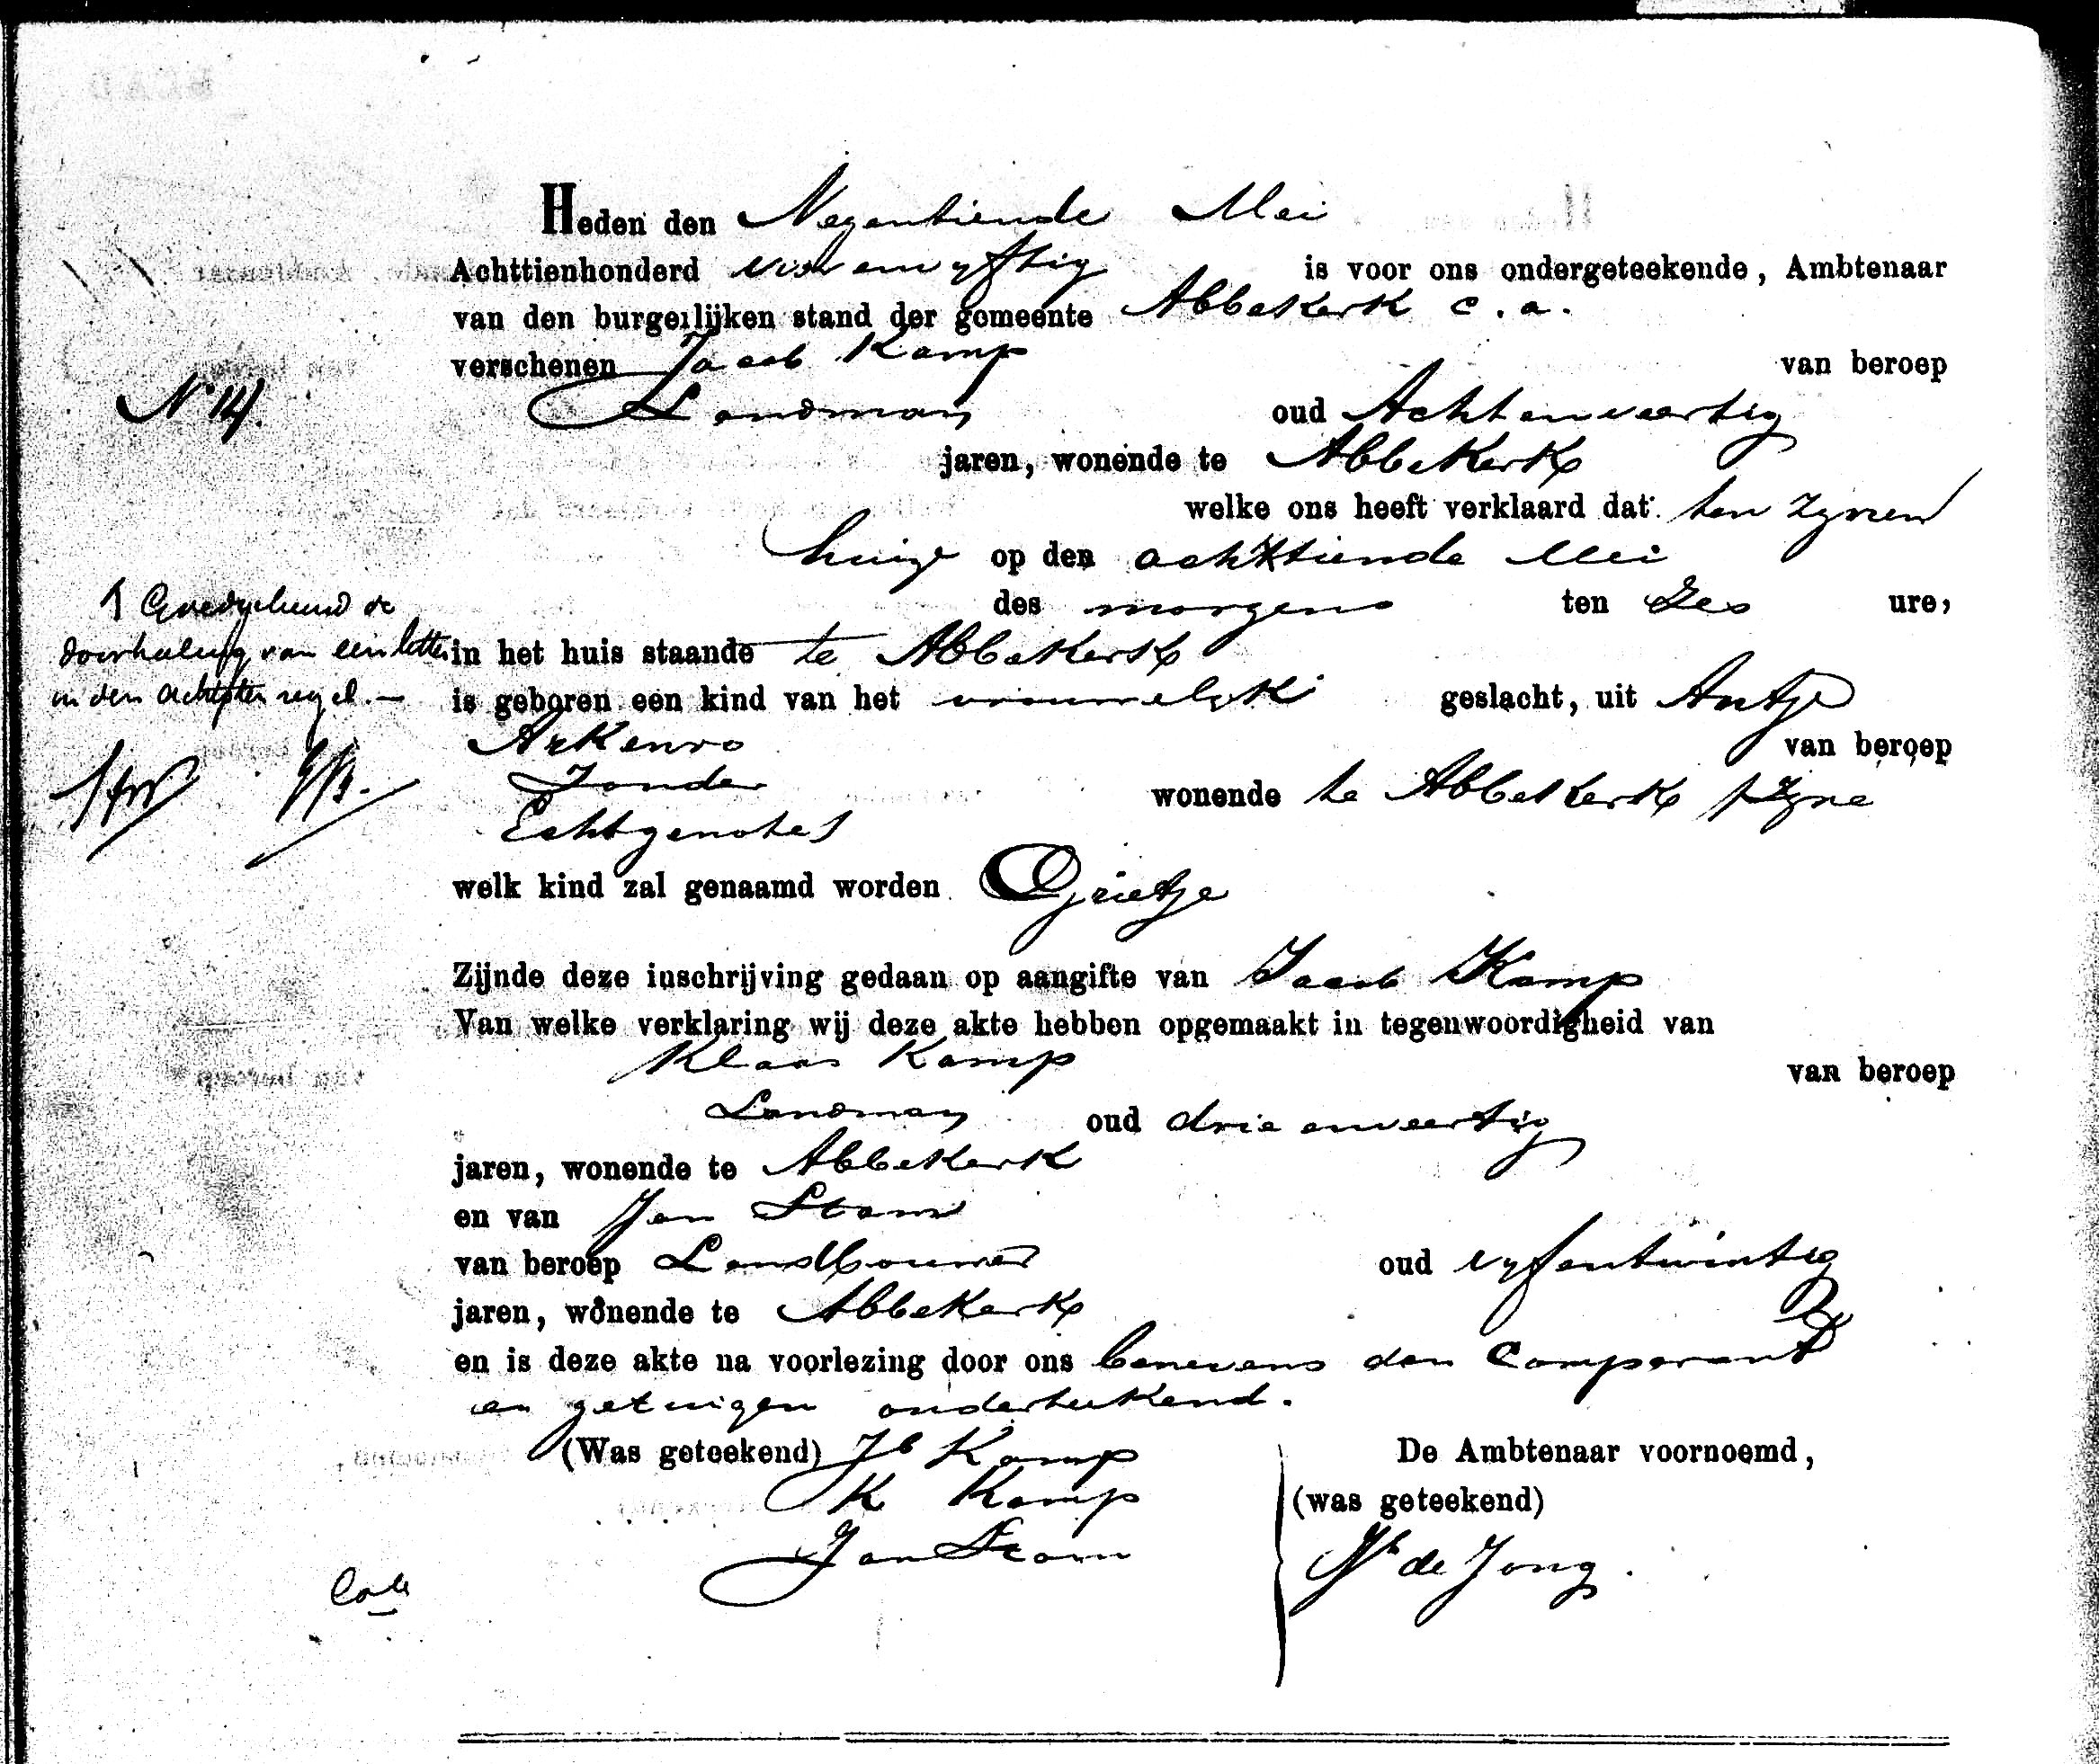 Heden den Negentiende Mei
Achttienhonderd vierenvyftig is voor ons ondergeteekende, Ambtenaar
van den burgerlijken stand der gemeente Abbekerk c.a.
verschenen Jacob Kamp van beroep
Landman oud Achtenveertig
N 14.
jaren, wonende te Abbekerk
welke ons heeft verklaard dat ten zynen
huize op den achttiende Mei
des morgens ten Zes ure,
in het huis staande te Abbekerk
is geboren een kind van het vrouwelyk geslacht, uit Antje
van beroep
Zonder wonende te Abbekerk zyne
Echtgenote
welk kind zal genaamd worden Grietje
Goedgekeurd de
doorhaling van een letter
in den achtsten regel. —
Zijnde deze inschrijving gedaan op aangifte van Jacob Kamp
Van welke verklaring wij deze akte hebben opgemaakt in tegenwoordigheid van
Klaas Kamp van beroep
Landman oud drie enveertig
jaren, wonende te Abbekerk
en van Jan Stam
van beroep Landbouwer oud vyfentwintig
jaren, wonende te Abbekerk
en is deze akte na voorlezing door ons benevens den Comparant
en getuigen onderteekend.
(Was geteekend) Jb Kamp
K Kamp
Jan Stam
De Ambtenaar voornoemd,
(was geteekend)
de Jong.